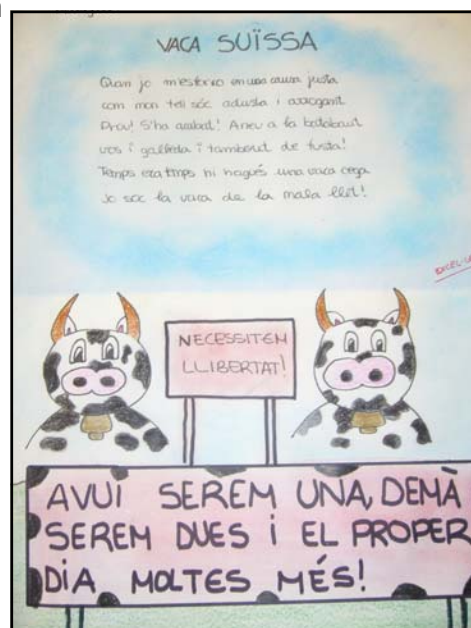 VACA SUÏSSA
Quan jo m'esforço en una causa justa
com mon tell sóc adusta i arrogant.
Prou! S'ha acabat! Aneu a la
vos i galleda i tamboret de fusta!
Temps era temps hi hagués una vaca cega
jo sóc la vaca de la mala llet!
NECESSITEM
LLIBERTAT!
AVUI SEREM UNA, DEMÀ
SEREM DUES I EL PROPER
DIA MOLTES MÉS!